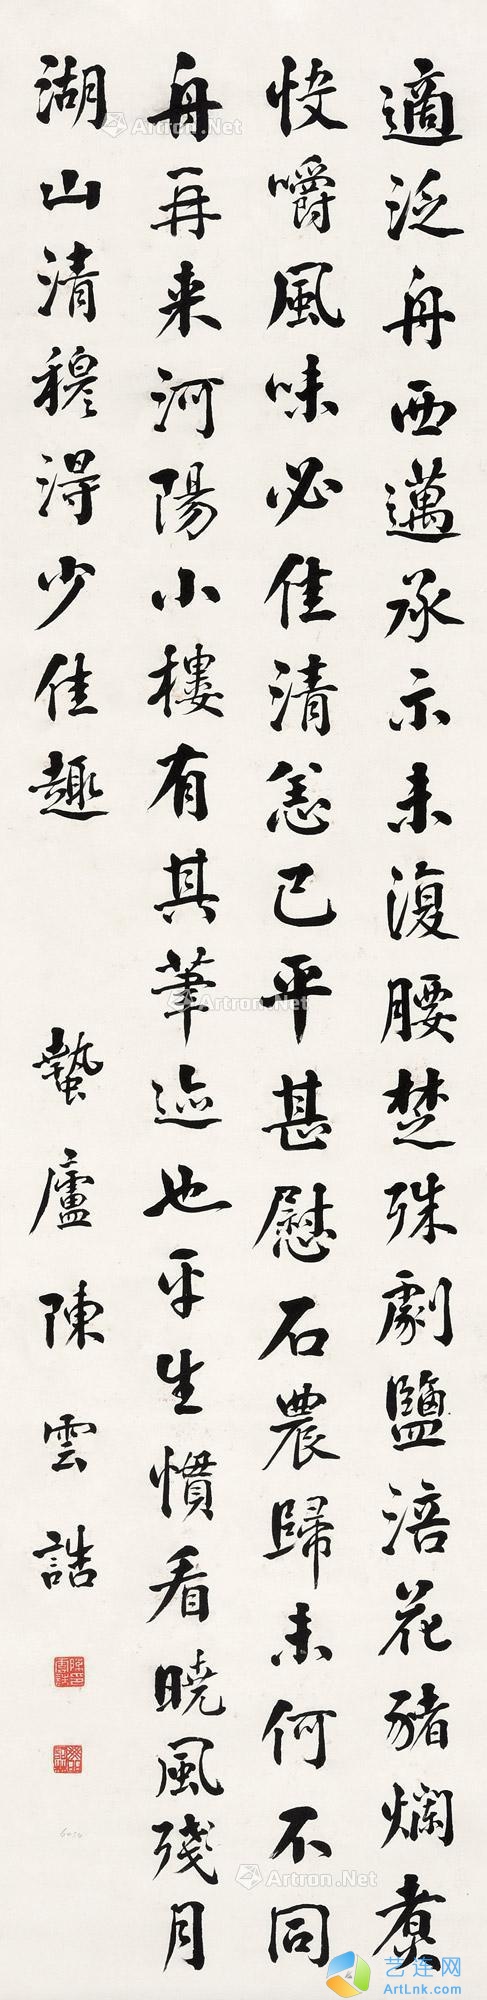 適泛舟西邁承示未復腰楚殊劇鹽涪花豬爛煑
快嚼風味必佳清恙已平甚慰石農歸未何不同
舟一再来河陽小樓有其筆迹也平生慣看曉風殘月
湖山清穆得少佳趣
蟄廬陳雲誥
Artron.Net
Artron.Net
Artron.Net
Artron.Net
Artron.Net
艺连网
ArtLnk.com